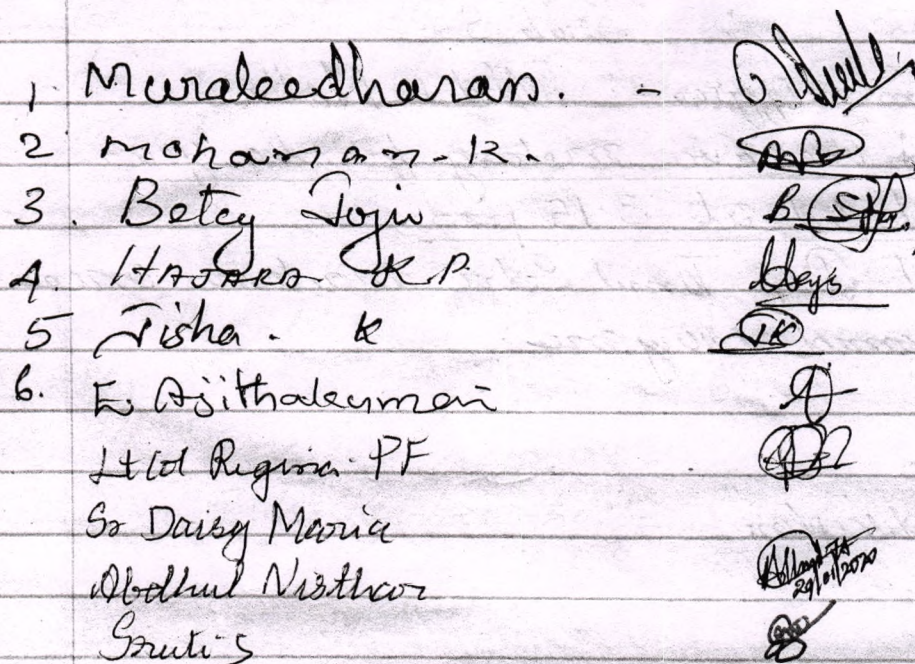 1. Muraleedharan. -
2 Mohanan. K.
3. Betcy Jojiv B
4. HAJARA K P.
5 Jisha. K JK
6. E. Ajithakumari
Lt Cd Regina PF
Sr Daisy Maria
Abdhul Nisthar 29/01/2020
Sruti S